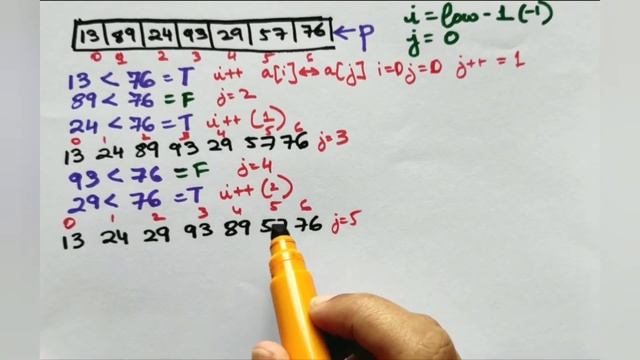 13 89 24 93 29 57 76 ← P
i = low - 1 (-1)
j = 0
0 1 2 3 4 5 6
13 < 76 = T i++ a[i] ↔ a[j] i=0 j=0 j++ = 1
89 < 76 = F j=2
24 < 76 = T i++ (1)
0 1 2 3 4 5 6
13 24 89 93 29 57 76 j=3
93 < 76 = F j=4
29 < 76 = T i++ (2)
0 1 2 3 4 5 6
13 24 29 93 89 57 76 j=5